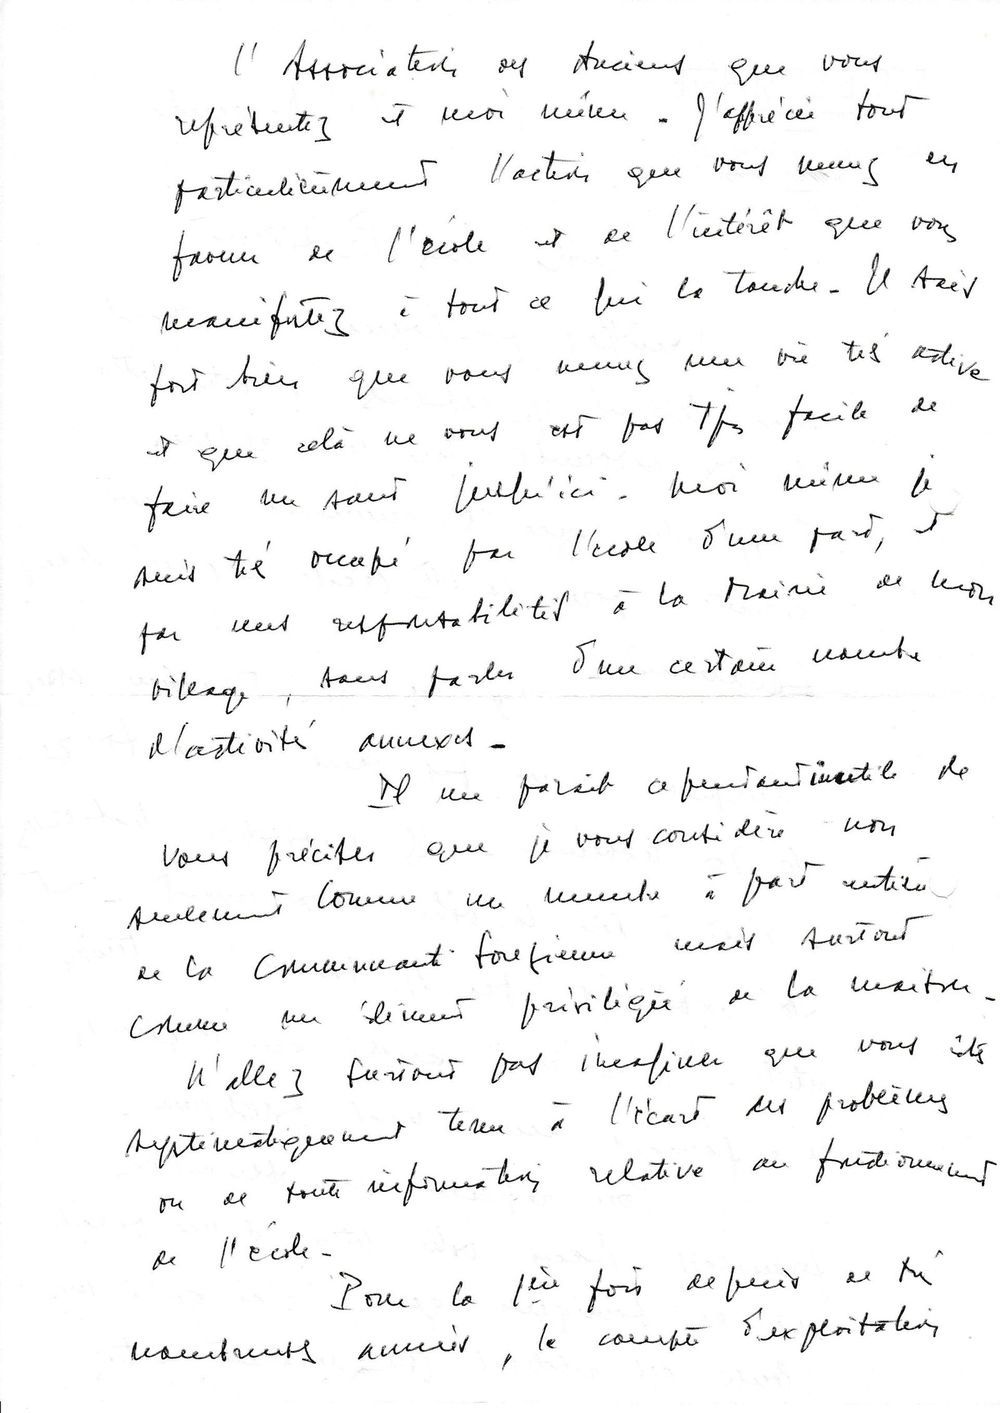 l'Association des Anciens que vous
représentez et moi même. J'apprécie tout
particulièrement l'action que vous menez en
faveur de l'école et de l'intérêt que vous
manifestez à tout ce qui la touche. Je sais
fort bien que vous menez une vie très active
et que celà ne vous est pas tjrs facile de
faire un saut jusqu'ici. Moi même je
suis très occupé par l'école d'une part, et
par mes responsabilités à la Mairie de mon
village, sans parler d'un certain nombre
d'activités annexes.
Il me parait cependant inutile de
vous préciser que je vous considère non
seulement comme un membre à part entière
de la Communauté mais surtout
comme un élément privilégié de la maison.
N'allez surtout pas imaginer que vous êtes
systématiquement tenu à l'écart des problèmes
ou de toute information relative au fonctionnement
de l'école.
Pour la 1ère fois depuis de très
nombreuses années, le compte d'exploitation